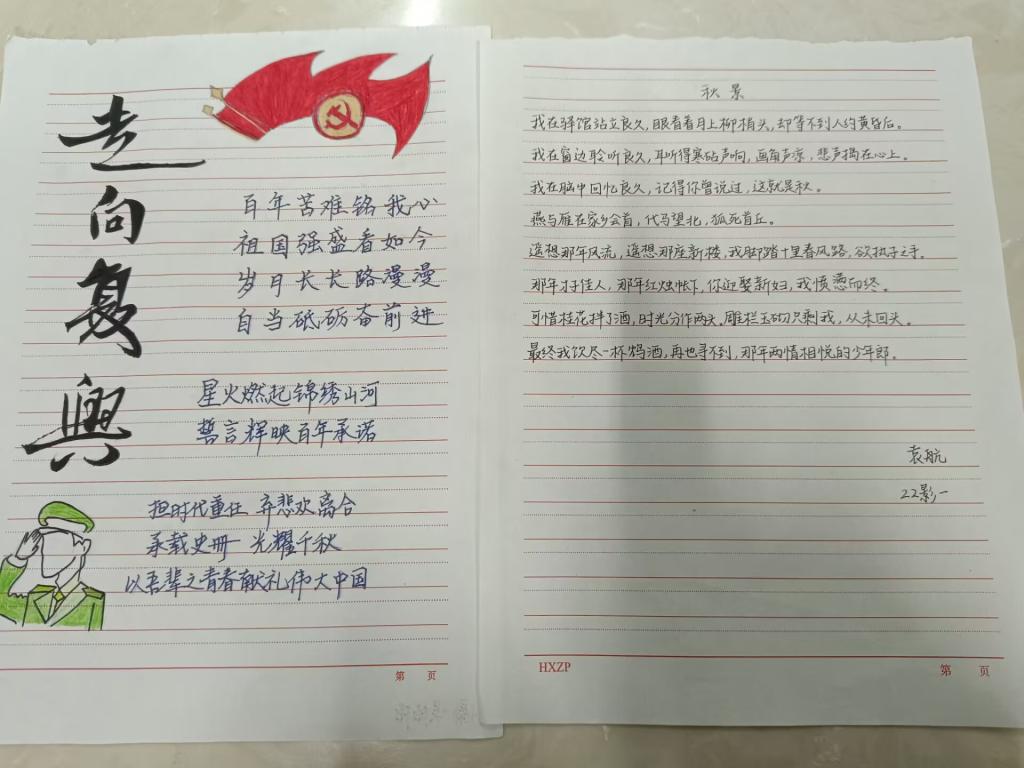 走向复興
百年苦难铭我心
祖国强盛看如今
岁月长长路漫漫
自当砥砺奋前进
星火燃起锦绣山河
誓言辉映百年承诺
担时代重任 弃悲欢离合
承载史册 光耀千秋
以吾辈之青春献礼伟大中国
第 页
秋景
我在驿馆站立良久,眼看着月上柳梢头,却等不到人约黄昏后。
我在窗边聆听良久,耳听得寒砧声响,画角声凉,悲声捣在心上。
我在脑中回忆良久,记得你曾说过,这就是秋。
燕与雁在家乡会首,代马望北,狐死首丘。
遥想那年风流,遥想那座新楼,我脚踏十里春风路,欲执子之手。
那年才子佳人,那年红烛帐下,你迎娶新妇,我愤懑而终。
可惜桂花拌了酒,时光分作两头。雕栏玉砌只剩我,从未回头。
最终我饮尽一杯鸩酒,再也寻不到,那年两情相悦的少年郎。
袁航
22影一
HXZP
第 页